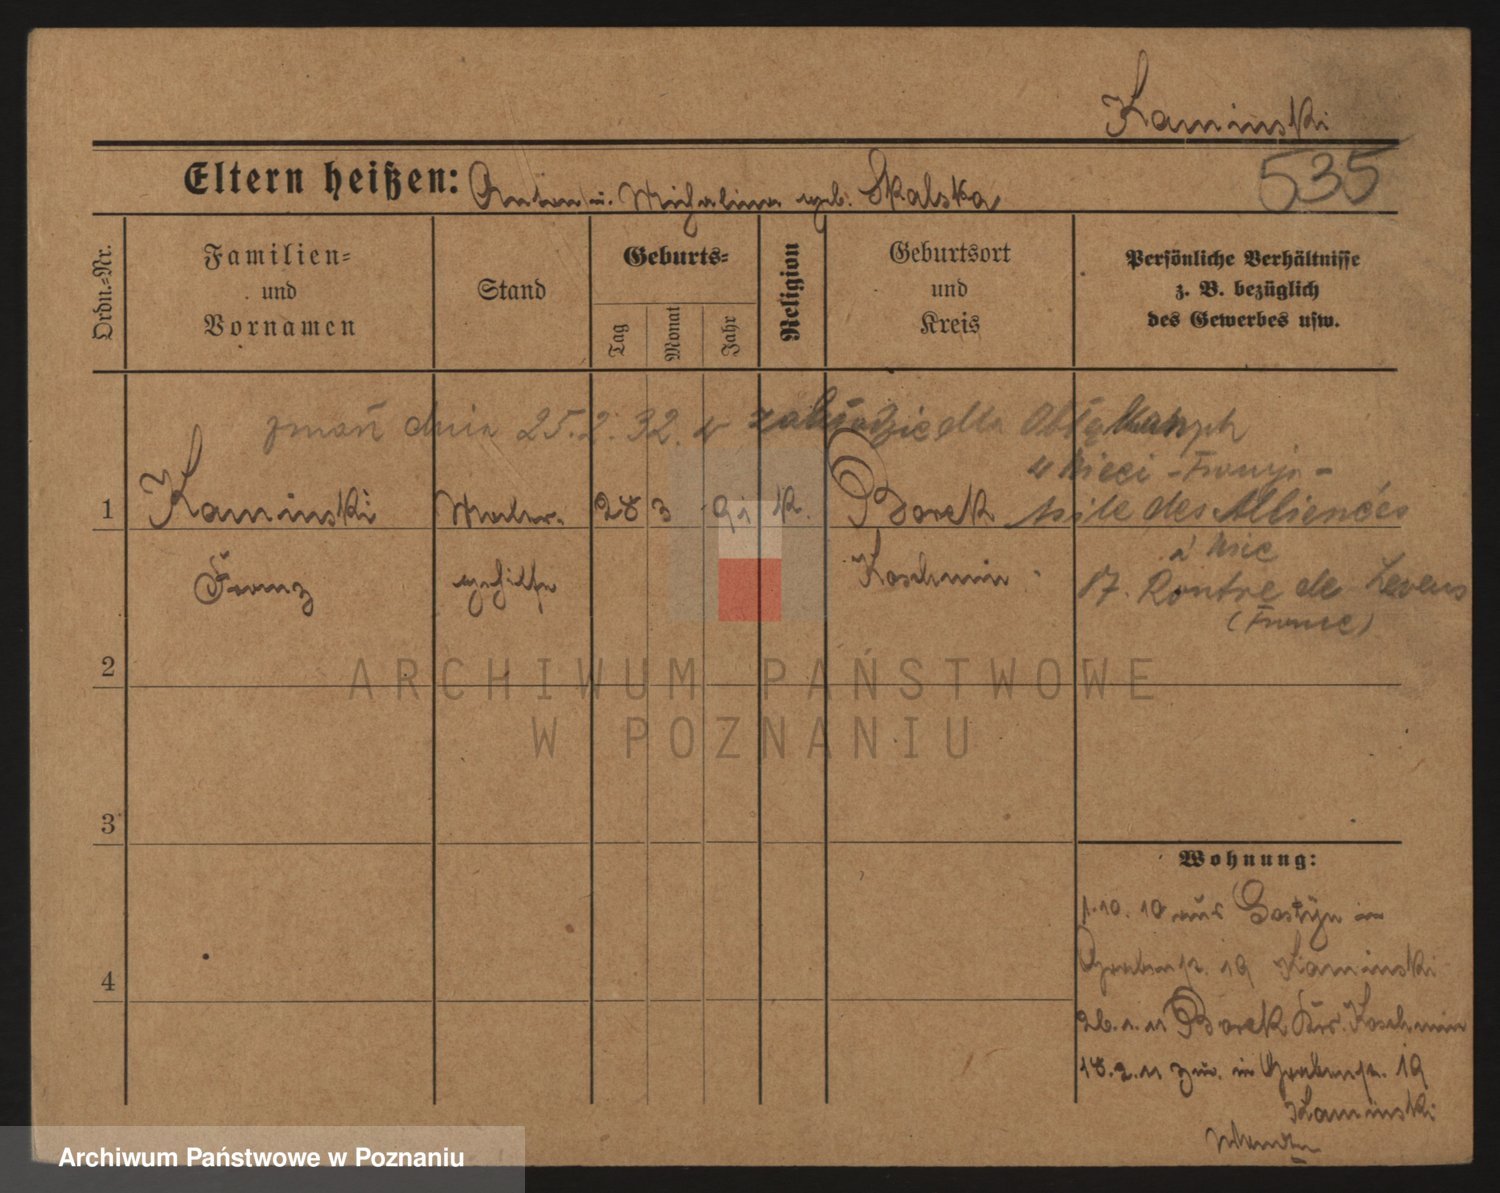 Kaminski
535
Eltern heißen: Anton u. Michalina geb. Skalska
Ordn.-Nr.
Familien- und Vornamen
Stand
Geburts-
Tag
Monat
Jahr
Religion
Geburtsort und Kreis
Persönliche Verhältnisse z. B. bezüglich des Gewerbes usw.
zmarł dnia 25.2.32. w zakładzie dla Obłąkanych
w Nicei - Francja -
1 Kaminski Maler- 28 3 91 k. Borek Asile des Aliénées
à Nice
Franz gehilfe Koschmin
17. Rontre de Levens
(France)
2
3
4
Wohnung:
1.10.10 aus Gostyn in
Grabenstr. 19 Kaminski
26.1.11 Borek Krs. Koschmin
18.2.11 zur. in Grabenstr. 19
Kaminski
ARCHIWUM PAŃSTWOWE
W POZNANIU
Archiwum Państwowe w Poznaniu